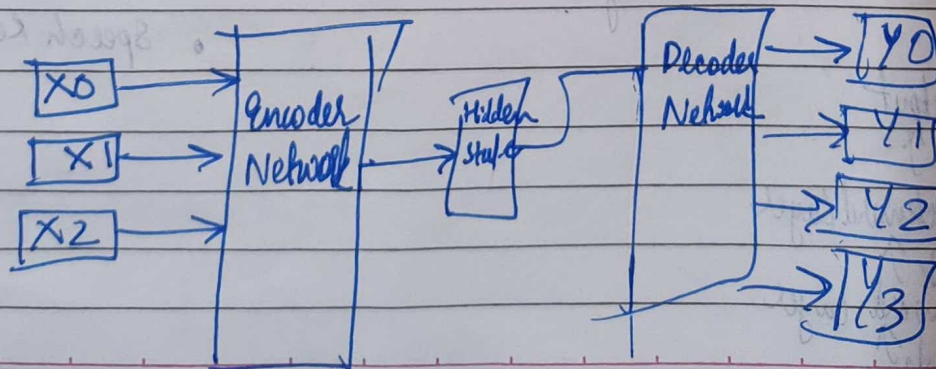 X0
X1
X2
Encoder
Network
Hidden
State
Decoder
Network
Y0
Y1
Y2
Y3